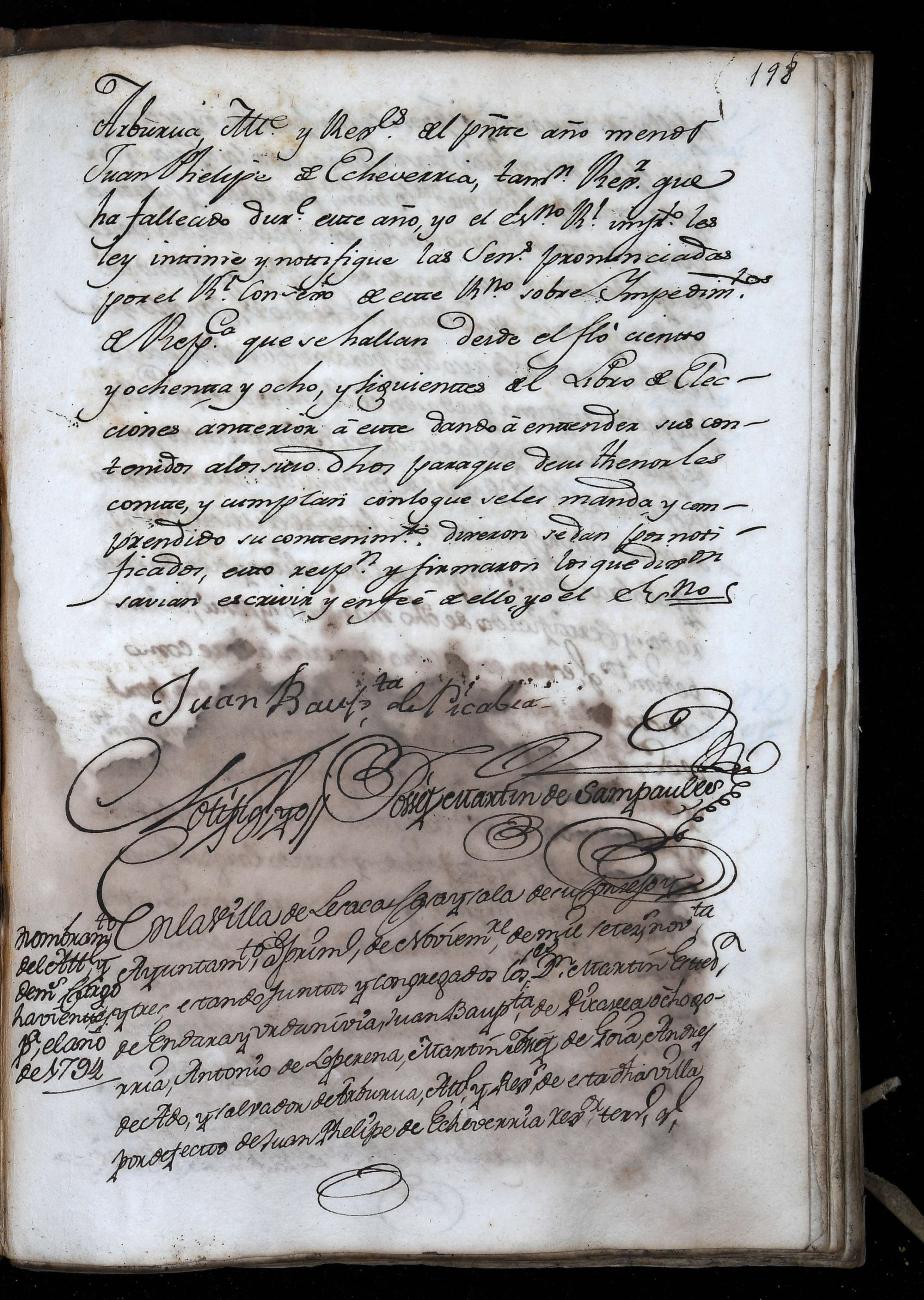 198
Arburua, Alle y Rexles del pnte año menos
Juan Phelipe de Echeverria, tamn Rexr que
ha fallecido dure este año, yo el esno Rl impto les
ley intime y nottifique las Sens pronunciadas
por el Rl Consejo de este Rno sobre Impedimtos
de Respca que se hallan desde el flo ciento
y ochenta y ocho, y siguientes del Libro de Elec-
ciones antterior á este dando á entender sus con-
tenidos a los suso Dhos para que de su thenor les
conste, y cumplan con lo que se les manda y com-
prendido su contenimto dixeron se dan por noti-
ficados, esto respn y firmaron los que dixeron
savian escrivir y en feé de ello yo el esno
Juan Bauptta de Picabea
Notifiqlo yo Joseph Martin de Sampaules
Nombramto
del Alle y
dems Cargo
havientes
pa el año
de 1794
En la Villa de Lesaca y sala de su Consejo y
Ayuntamto á primo de Noviembre de mil setezs novta
y tres estando Juntos y congregados los Srs Dn Martin
de Endara y Urdanivia, Juan Bauptta de Picabea ochogo-
rria, Antonio de Laperena, Martin Joseph de Goia, Andres
de Ado, y Salvador de Arburua, Alle y Rexs de esta dha villa
por defecto de Juan Phelipe de Echeverria Rexr